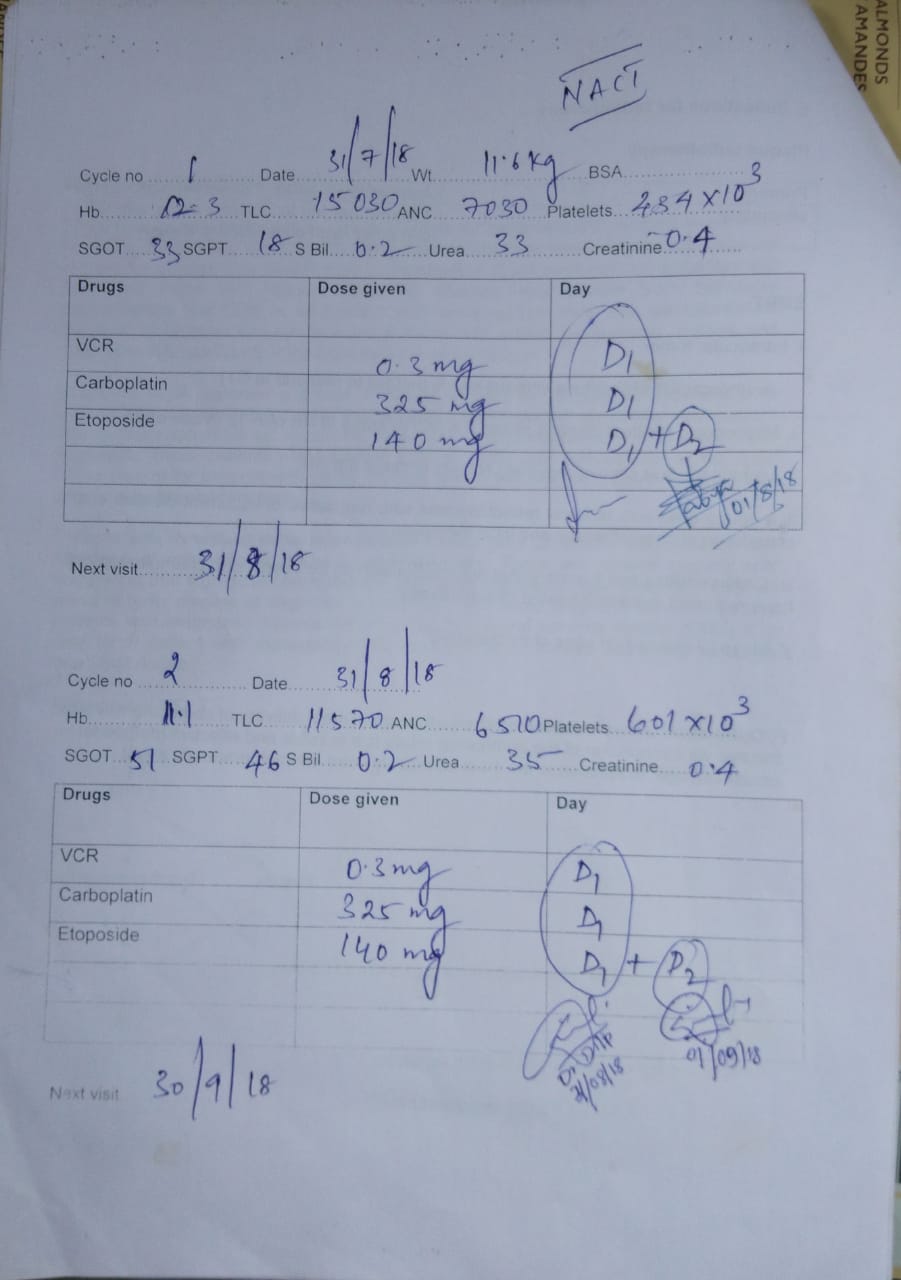 ALMONDS
AMANDES
NACT
Cycle no 1 Date 31/7/18 Wt. 11.6 kg BSA
Hb. 12.3 TLC 15030 ANC 7030 Platelets 484 x 10³
SGOT 33 SGPT 18 S Bil 0.2 Urea 33 Creatinine 0.4
Drugs Dose given Day
VCR 0.3 mg D1
Carboplatin 325 mg D1
Etoposide 140 mg D1 + D2
01/8/18
Next visit 31/8/18
Cycle no 2 Date 31/8/18
Hb 11.1 TLC 11570 ANC 6510 Platelets 601 x 10³
SGOT 51 SGPT 46 S Bil 0.2 Urea 35 Creatinine 0.4
Drugs Dose given Day
VCR 0.3 mg D1
Carboplatin 325 mg D1
Etoposide 140 mg D1 + D2
31/08/18 01/09/18
Next visit 30/9/18